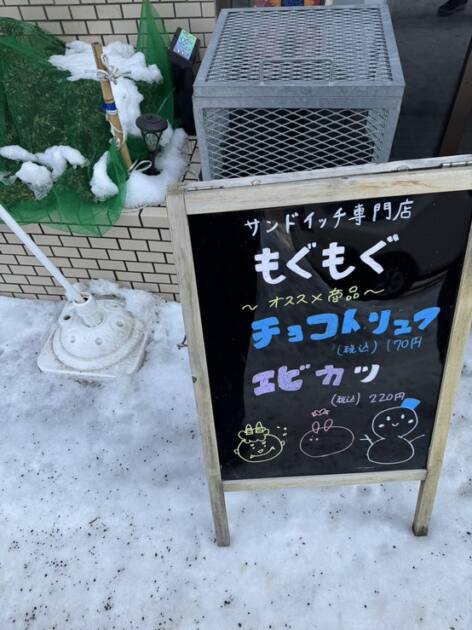 サンドイッチ専門店
もぐもぐ
～オススメ商品～
チョコトリュフ
(税込) 170円
エビカツ
(税込) 220円